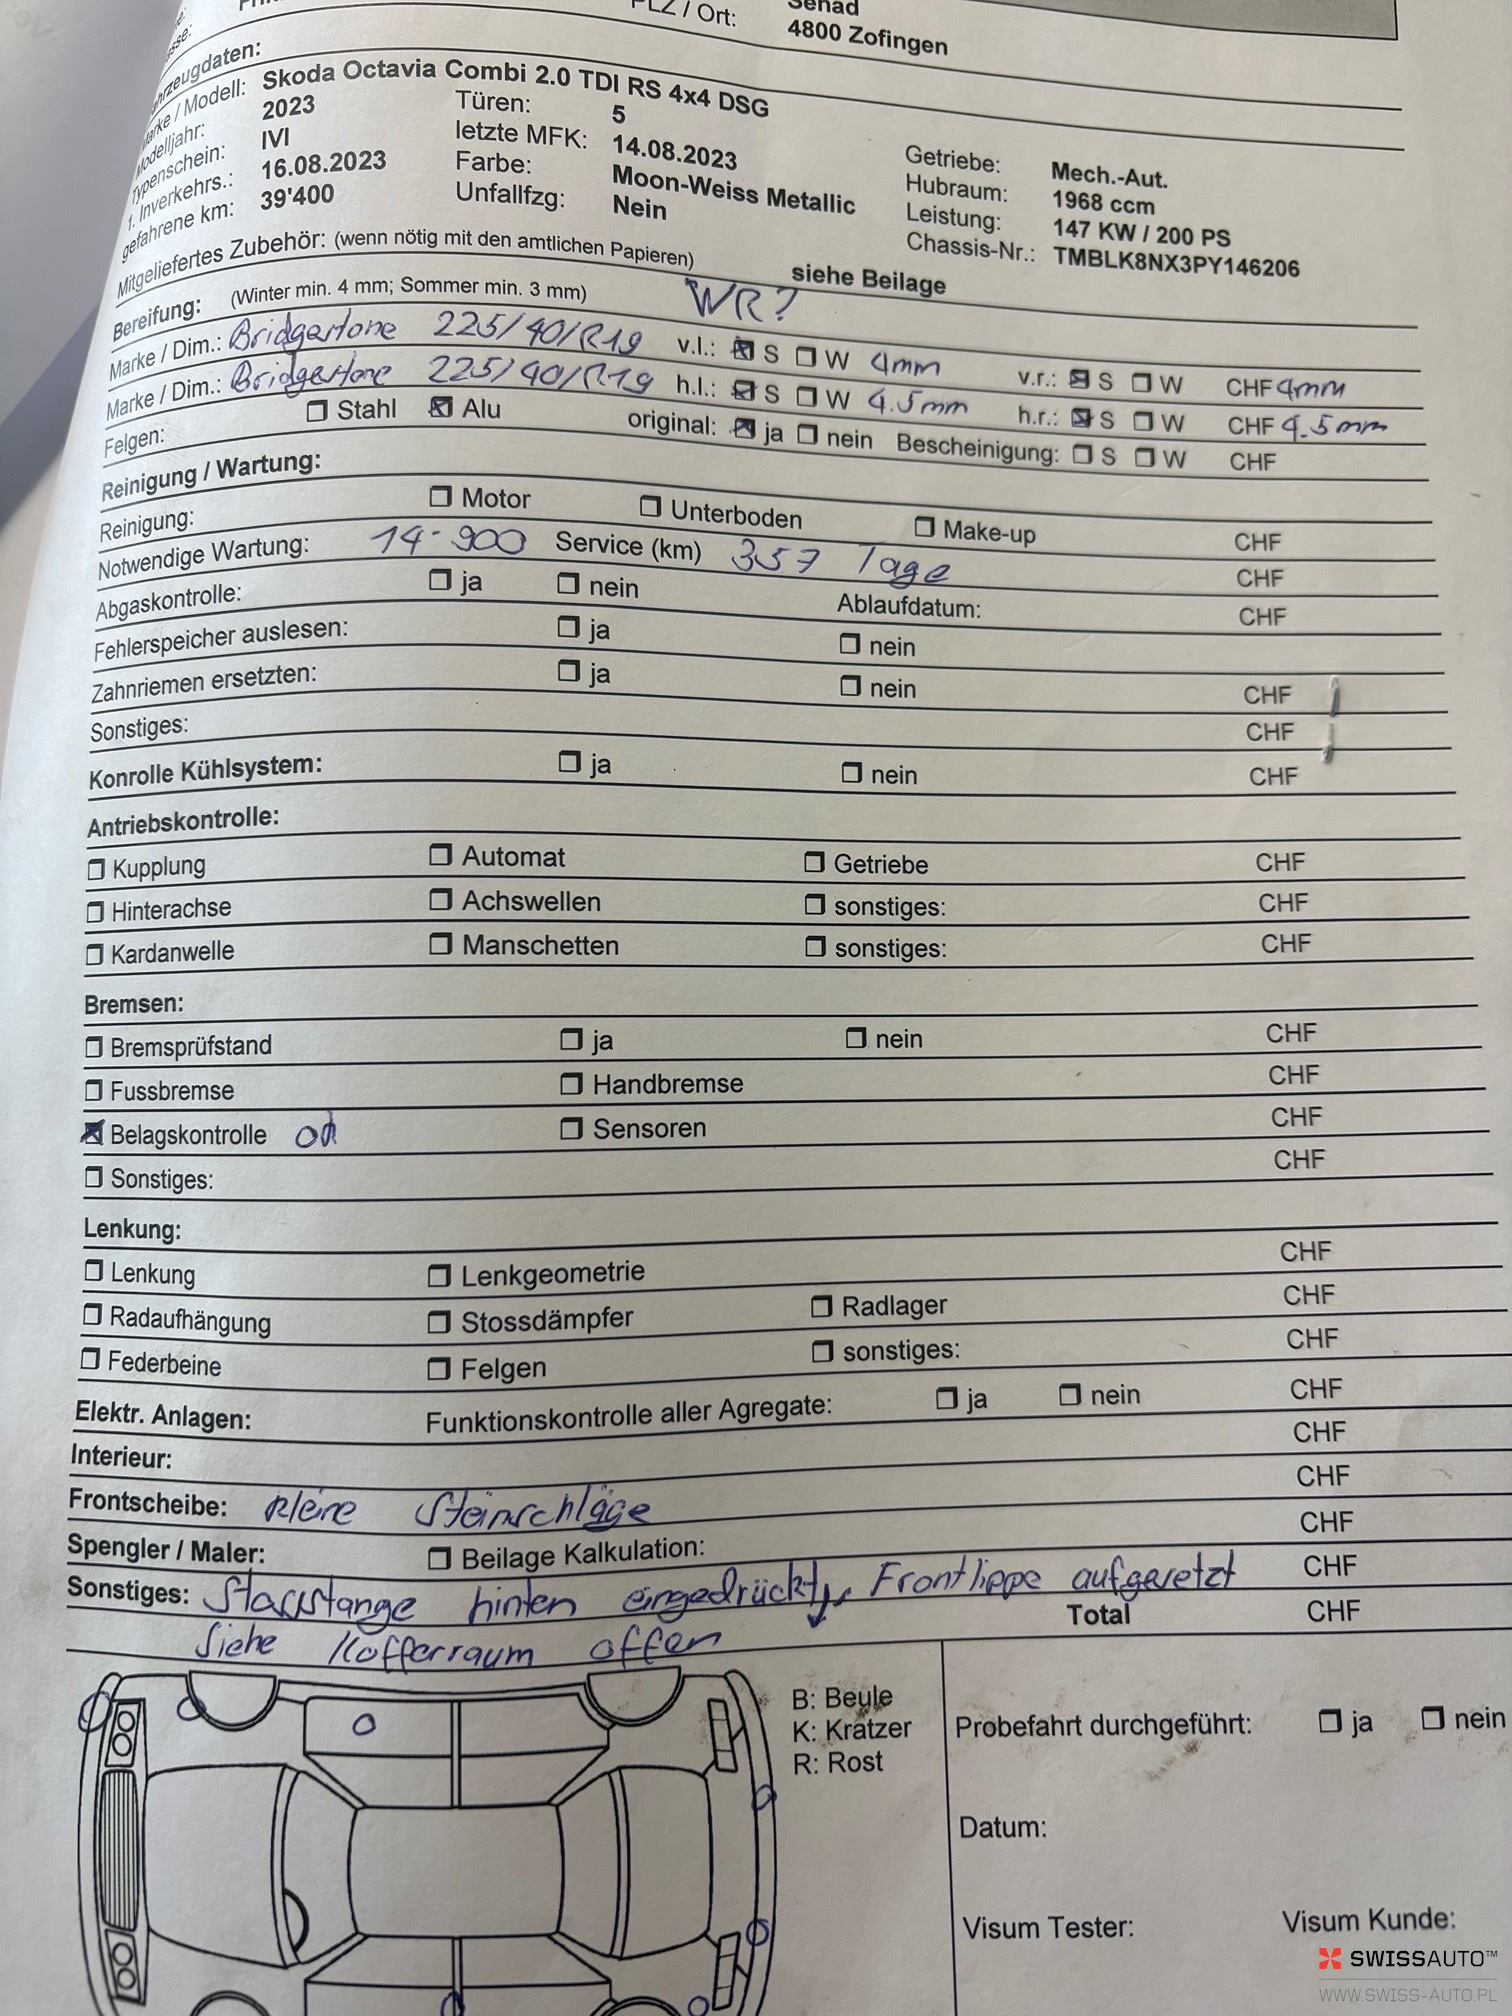 Senad
PLZ / Ort: 4800 Zofingen
Marke / Modell: Skoda Octavia Combi 2.0 TDI RS 4x4 DSG
Modelljahr: 2023 Türen: 5 Getriebe: Mech.-Aut.
Typenschein: IVI letzte MFK: 14.08.2023 Hubraum: 1968 ccm
1. Inverkehrs.: 16.08.2023 Farbe: Moon-Weiss Metallic Leistung: 147 KW / 200 PS
gefahrene km: 39'400 Unfallfzg: Nein Chassis-Nr.: TMBLK8NX3PY146206
Mitgeliefertes Zubehör: (wenn nötig mit den amtlichen Papieren) siehe Beilage
Bereifung: (Winter min. 4 mm; Sommer min. 3 mm) WR?
Marke / Dim.: Bridgestone 225/40/R19 v.l.: S W 4mm v.r.: S W CHF 4mm
Marke / Dim.: Bridgestone 225/40/R19 h.l.: S W 4.5mm h.r.: S W CHF 4.5mm
Felgen: Stahl Alu original: ja nein Bescheinigung: S W CHF
Reinigung / Wartung:
Reinigung: Motor Unterboden Make-up CHF
Notwendige Wartung: 14-900 Service (km) 357 Tage CHF
Abgaskontrolle: ja nein Ablaufdatum: CHF
Fehlerspeicher auslesen: ja nein
Zahnriemen ersetzten: ja nein CHF
Sonstiges: CHF
Konrolle Kühlsystem: ja nein CHF
Antriebskontrolle:
Kupplung Automat Getriebe CHF
Hinterachse Achswellen sonstiges: CHF
Kardanwelle Manschetten sonstiges: CHF
Bremsen:
Bremsprüfstand ja nein CHF
Fussbremse Handbremse CHF
Belagskontrolle ok Sensoren CHF
Sonstiges: CHF
Lenkung:
Lenkung Lenkgeometrie CHF
Radaufhängung Stossdämpfer Radlager CHF
Federbeine Felgen sonstiges: CHF
Elektr. Anlagen: Funktionskontrolle aller Agregate: ja nein CHF
Interieur: CHF
Frontscheibe: kleine Steinschläge CHF
Spengler / Maler: Beilage Kalkulation: CHF
Sonstiges: Stosstange hinten eingedrückt, Frontlippe aufgesetzt CHF
Total CHF
Siehe Kofferraum offen
B: Beule
K: Kratzer
R: Rost
Probefahrt durchgeführt: ja nein
Datum:
Visum Tester: Visum Kunde:
SWISSAUTO™
WWW.SWISS-AUTO.PL